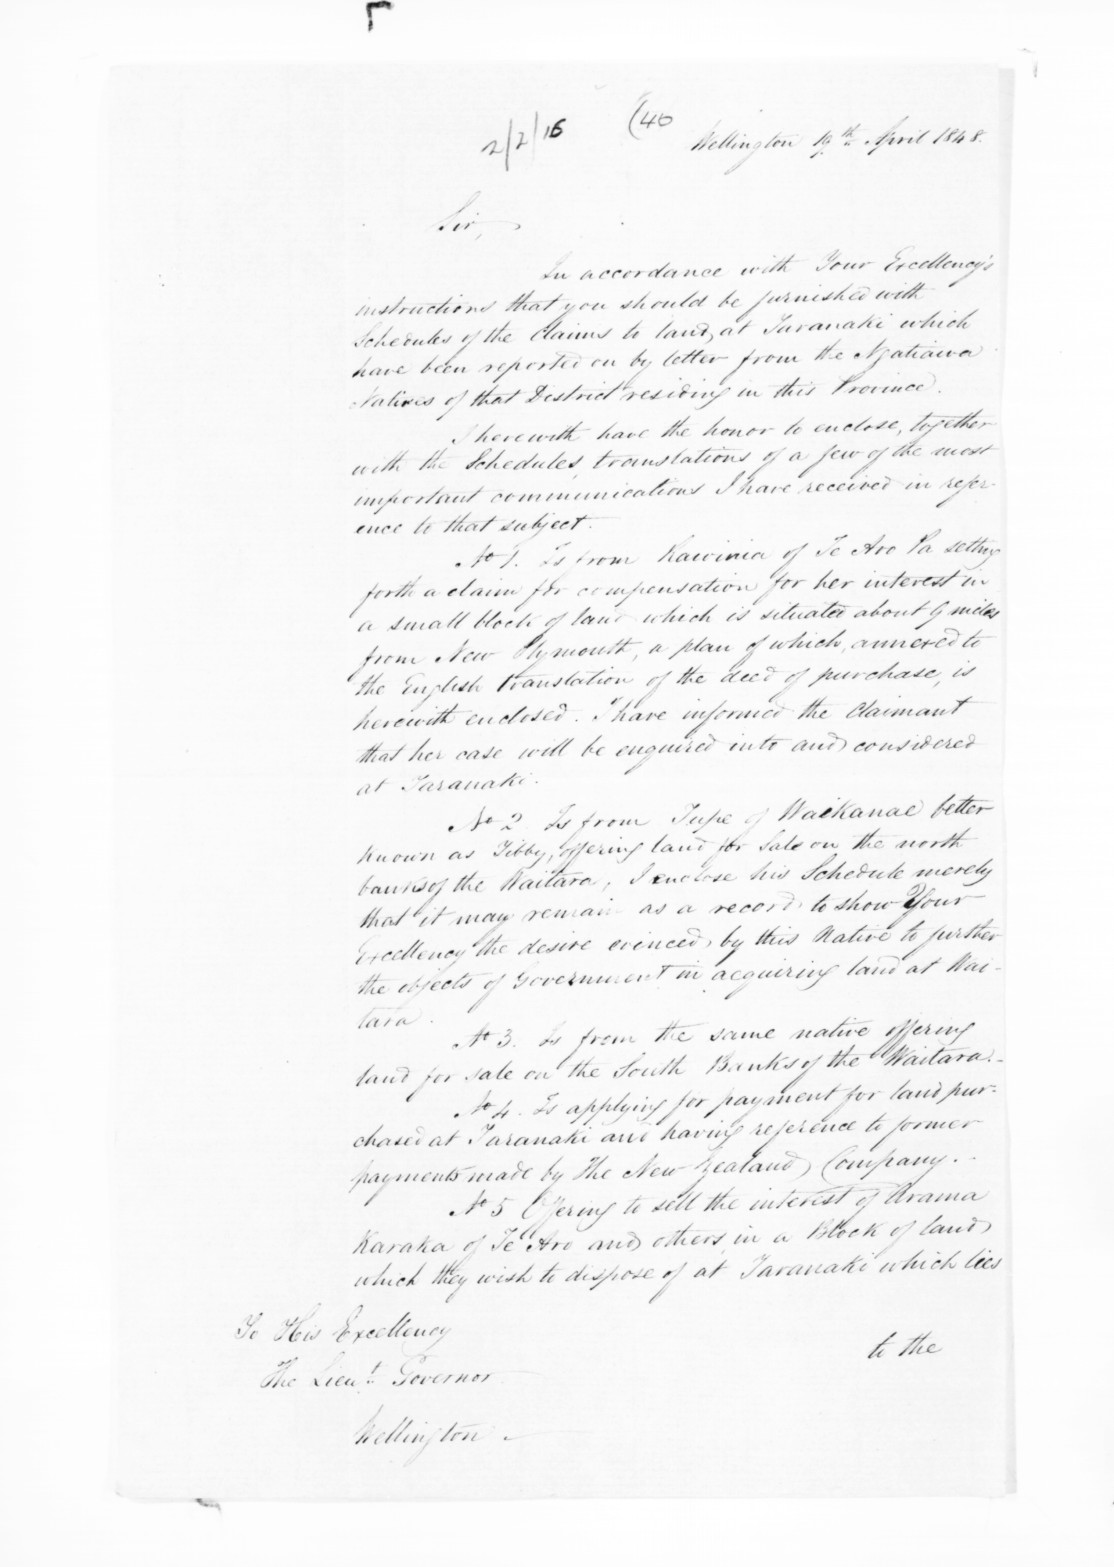 2/2/16 (40
Wellington 19th April 1848.
Sir,
In accordance with Your Excellency's
instructions that you should be furnished with
Schedules of the Claims to land, at Taranaki which
have been reported on by letter from the Ngatiawa
Natives of that District residing in this Province.
I herewith have the honor to enclose, together
with the Schedules, translations of a few of the most
important communications I have received in refer-
ence to that subject.
No 1. Is from Rawinia of Te Aro Pa setting
forth a claim for compensation for her interest in
a small block of land which is situated about 9 miles
from New Plymouth, a plan of which, annexed to
the English translation of the deed of purchase, is
herewith enclosed. I have informed the Claimant
that her case will be enquired into and considered
at Taranaki.
No 2. Is from Tupe of Waikanae better
known as Tibby, offering land for Sale on the north
banks of the Waitara, I enclose his Schedule merely
that it may remain as a record to show Your
Excellency the desire evinced, by this Native to further
the objects of Government in acquiring land at Wai-
tara.
No 3. Is from the same native offering
land for sale on the South Banks of the Waitara.-
No 4. Is applying for payment for land pur-
chased at Taranaki and having reference to former
payments made by The New Zealand Company.
No 5 Offering to sell the interest of Arama
Karaka of Te Aro and others, in a Block of land
which they wish to dispose of at Taranaki which lies
to the
To His Excellency
The Lieut. Governor
Wellington